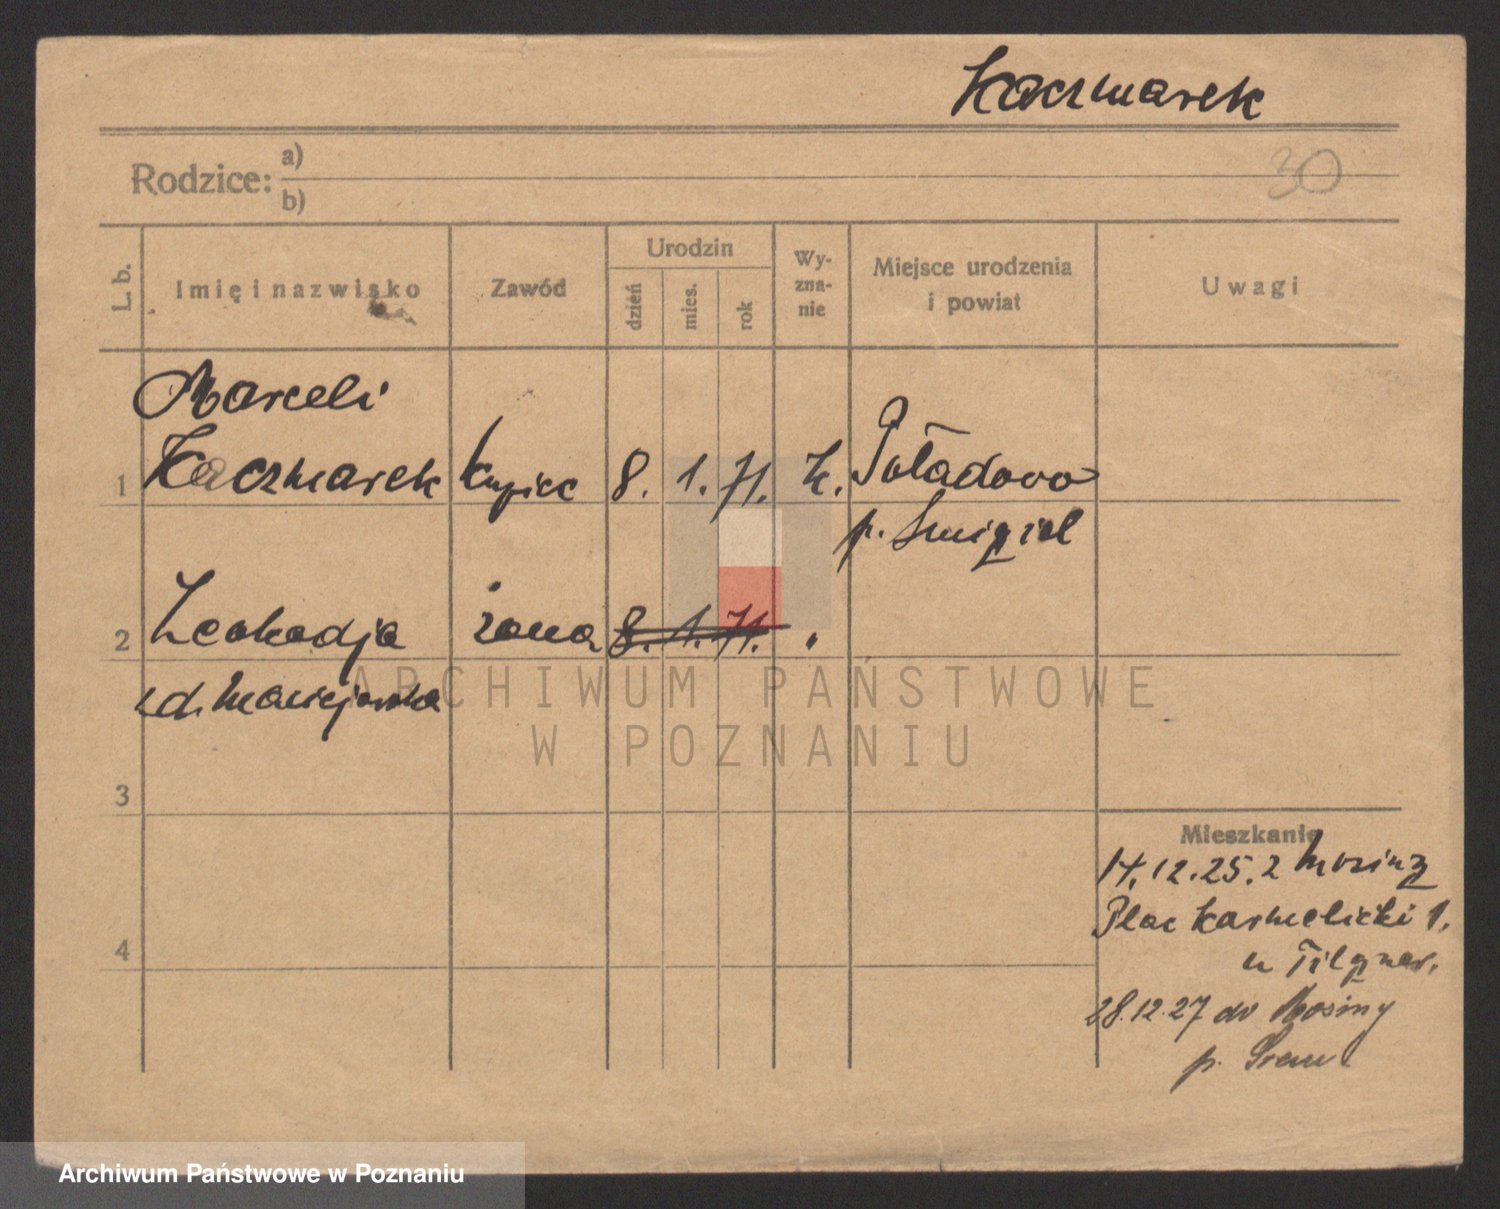 Kaczmarek
Rodzice: a)
b)
30
L. b.
Imię i nazwisko
Zawód
Urodzin
dzień
mies.
rok
Wy-
zna-
nie
Miejsce urodzenia
i powiat
Uwagi
Marceli
1 Kaczmarek kupiec 8. 1. 71. k. Poładowo
p. Śmigiel
2 Leokadja żona 8. 1. 71. "
z d. Maciejewska
ARCHIWUM PAŃSTWOWE
W POZNANIU
3
Mieszkanie
14.12.25. z Mosiny
Plac Karmelicki 1.
4
u Tilgner.
28.12.27 do Mosiny
p. Śrem
Archiwum Państwowe w Poznaniu